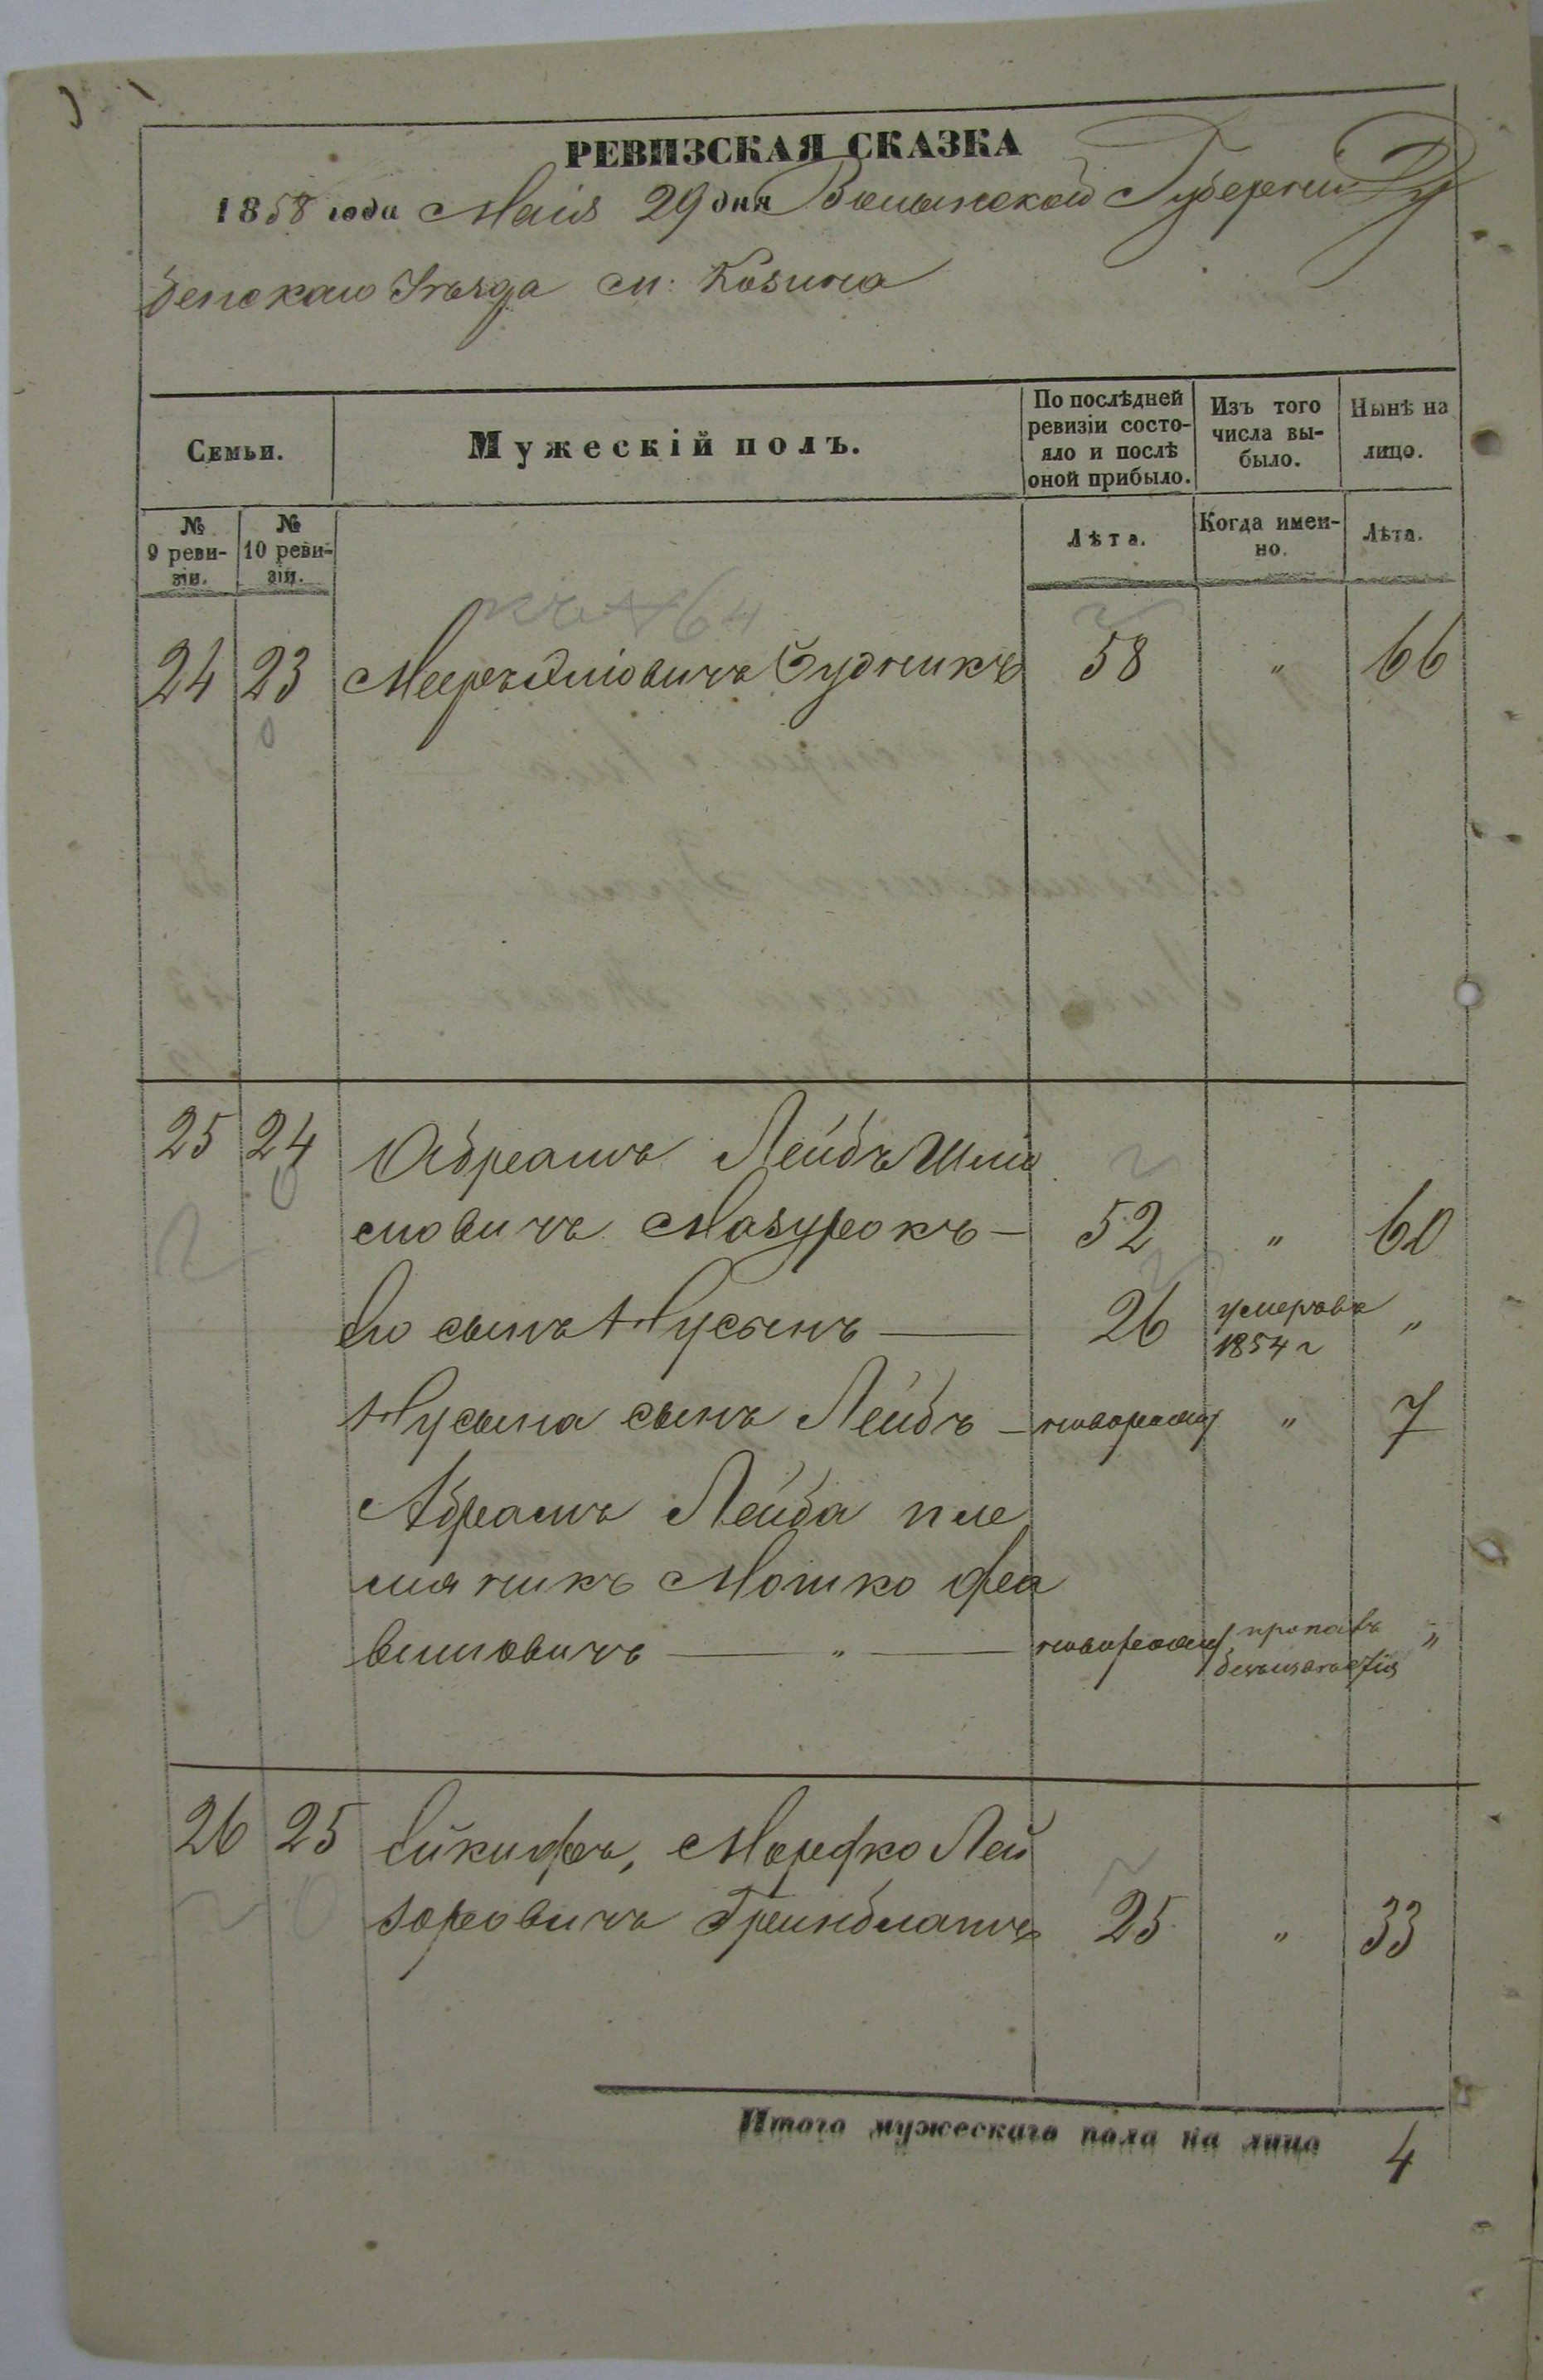 РЕВИЗСКАЯ СКАЗКА
1858 года Маія 29 дня Волынской Губерніи Ду
бенскаго Уѣзда м: Козина
Семьи.
Мужескій полъ.
По послѣдней ревизіи состо-
яло и послѣ
оной прибыло.
Изъ того
числа вы-
было.
Нынѣ на
лицо.
№
9 реви-
зіи.
№
10 реви-
зіи.
Лѣта.
Когда имен-
но.
Лѣта.
64
24 23 Мееръ Судникъ 58 " 66
25 24 Абрамъ Лейбъ Шлио
мовичъ Мазурокъ — 52 " 60
Его сынъ Нусынъ — 26 умеръ въ 1854 г "
Нусына сынъ Лейбъ — новорожд " 7
Абрамъ Лейба пле
мянникъ Мошко
вишовичъ — " — новорожд пропалъ безъизвестія "
26 25 Мордко Лей
зоровичъ Гринблатъ 25 " 33
Итого мужескаго пола на лицо 4